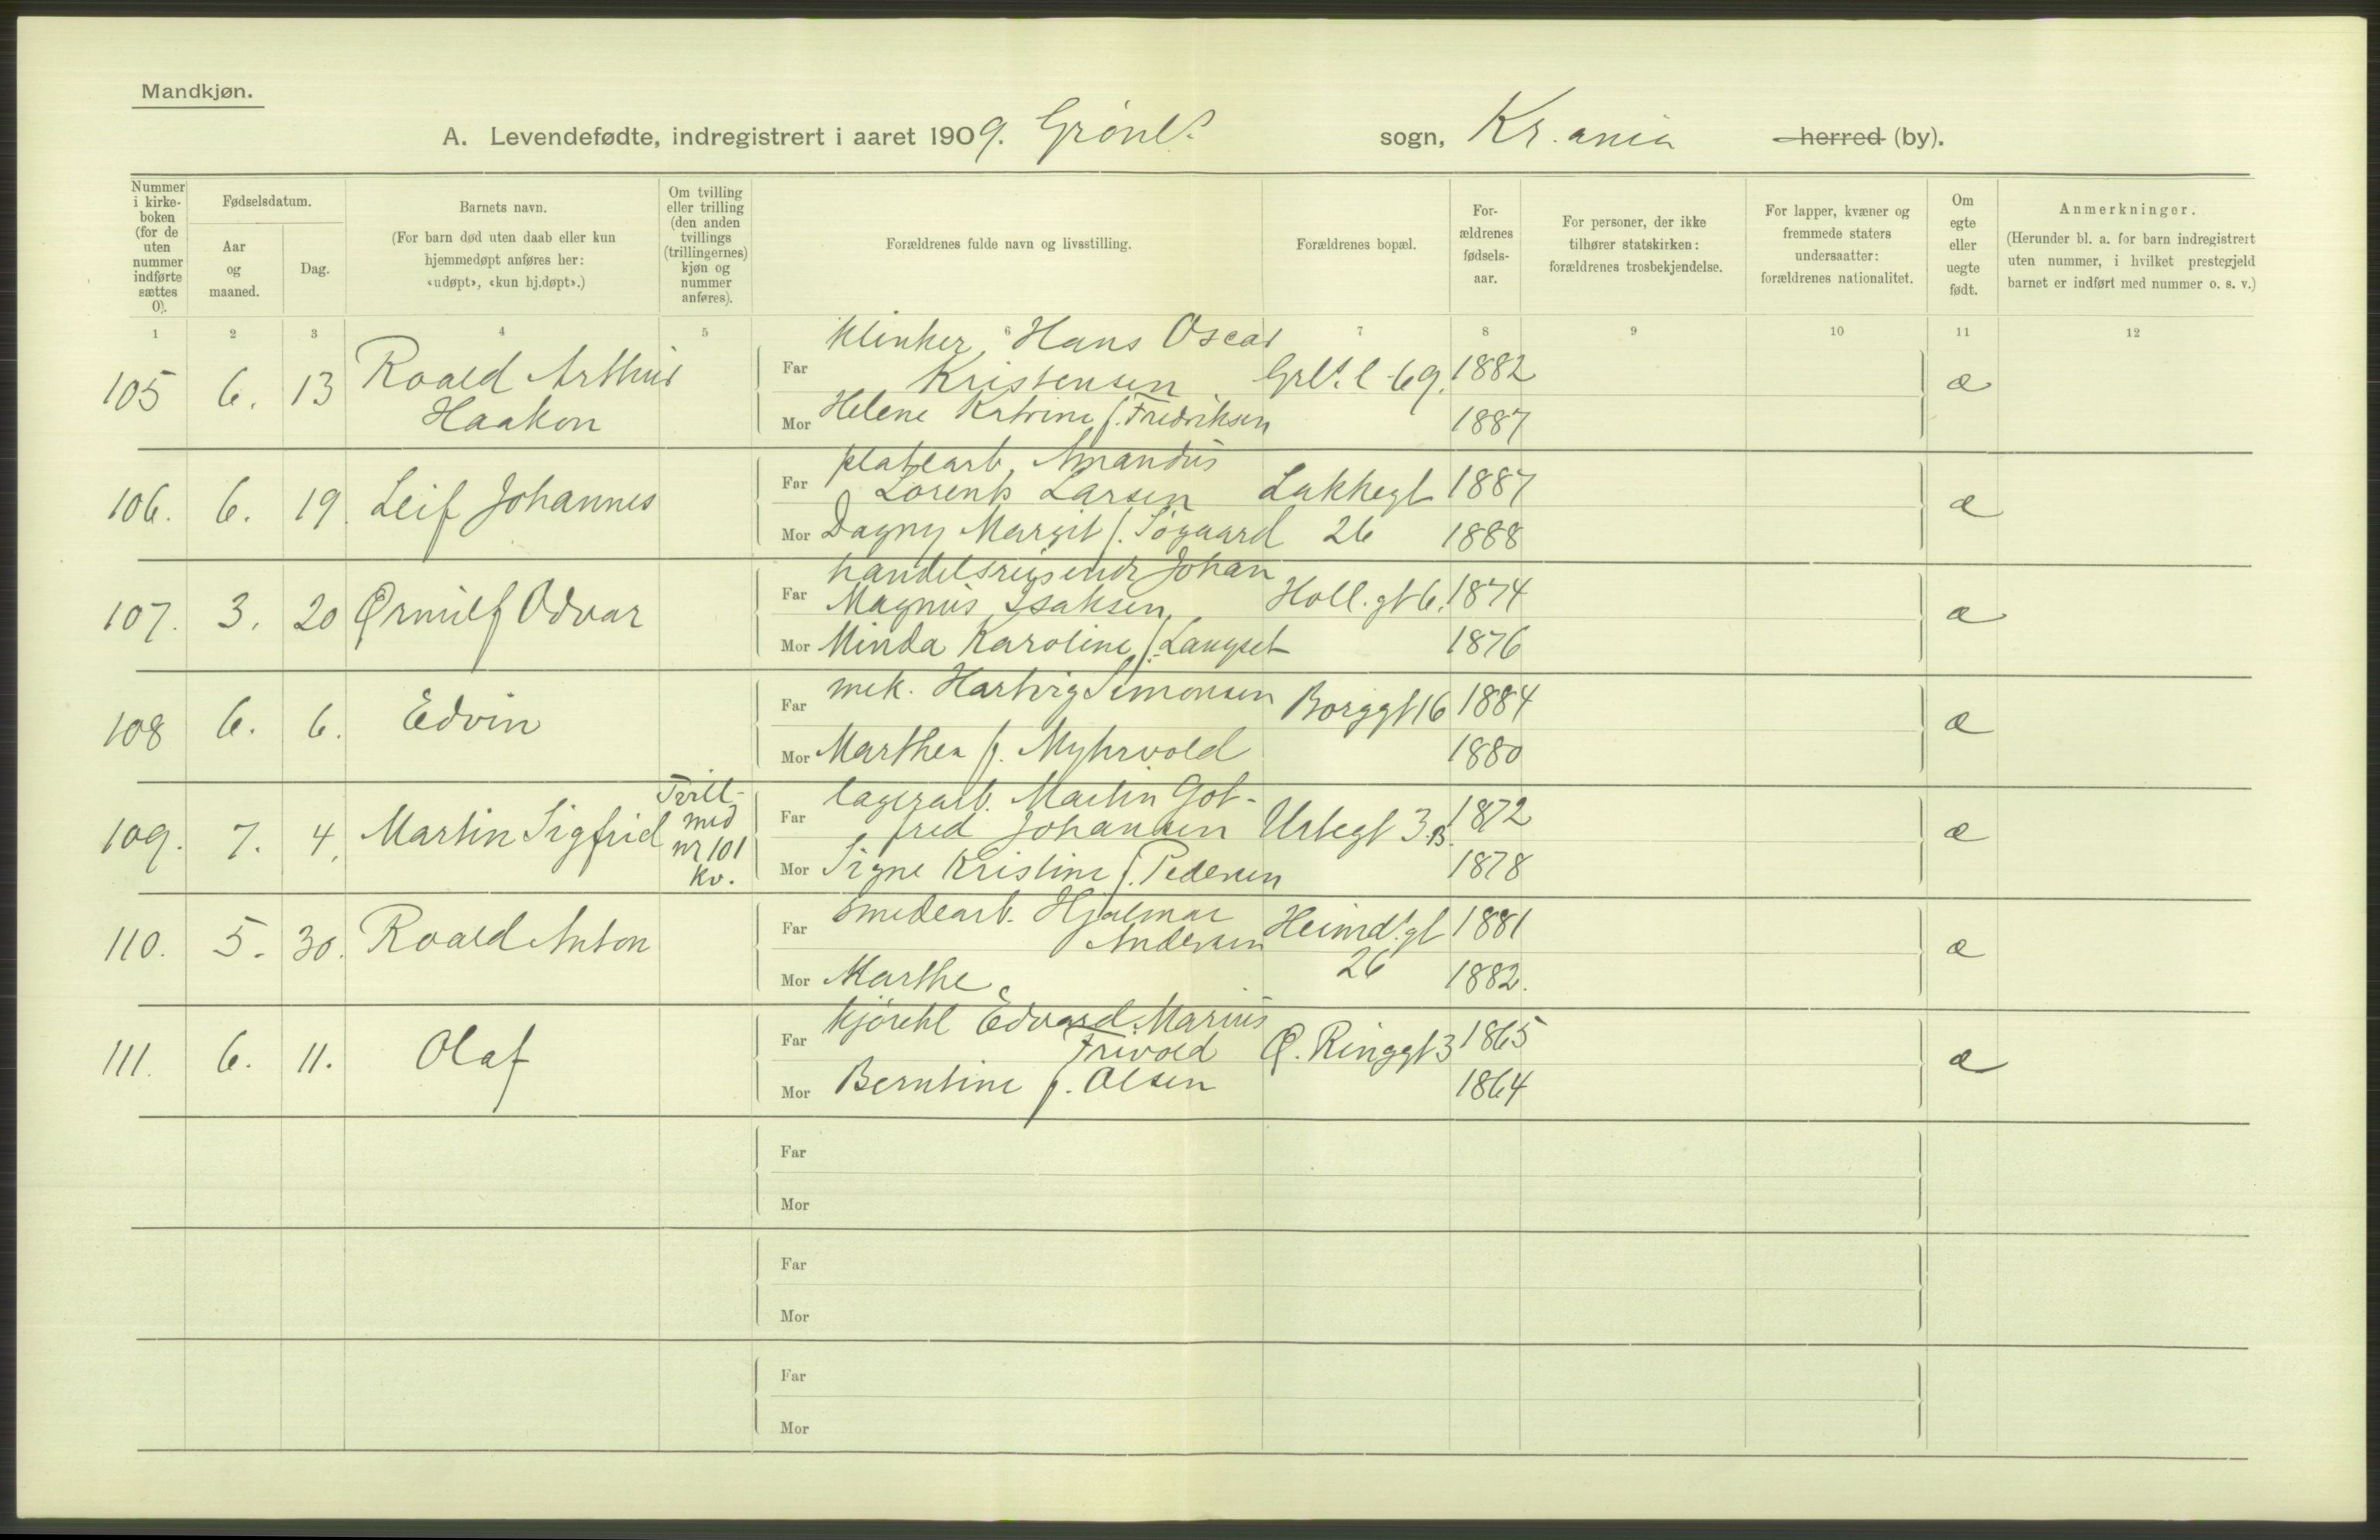 Mandkjøn.
A. Levendefødte, indregistrert i aaret 1909. Grønl.s sogn, Kr.ania herred (by).
Nummer i kirke-boken (for de uten nummer indførte sættes 0).
Fødselsdatum.
Aar og maaned.
Dag.
Barnets navn.
(For barn død uten daab eller kun hjemmedøpt anføres her: «udøpt», «kun hj.døpt».)
Om tvilling eller trilling (den anden tvillings (trillingernes) kjøn og nummer anføres).
Forældrenes fulde navn og livsstilling.
Forældrenes bopæl.
For-ældrenes fødsels-aar.
For personer, der ikke tilhører statskirken: forældrenes trosbekjendelse.
For lapper, kvæner og fremmede staters undersaatter: forældrenes nationalitet.
Om egte eller uegte født.
Anmerkninger.
(Herunder bl. a. for barn indregistrert uten nummer, i hvilket prestegjeld barnet er indført med nummer o. s. v.)
1 2 3 4 5 6 7 8 9 10 11 12
105 6. 13 Roald Arthur Haakon
Far Klinker, Hans Oscar Kristensen Grl.s l. 69. 1882 æ
Mor Helene Katrine f. Fredriksen 1887
106. 6. 19. Leif Johannes
Far platearb. Amandus Lorents Larsen Lakkegt 1887 æ
Mor Dagny Margit f. Søgaard 26 1888
107. 3. 20 Ørnulf Odvar
Far handelsreisende Johan Magnus Isaksen Holl.gt 6. 1874 æ
Mor Minda Karoline f. Langset 1876
108 6. 6. Edvin
Far mek. Hartvig Simonsen Borggt 16 1884 æ
Mor Marthea f. Myhrvold 1880
109. 7. 4. Martin Sigfrid Tvill- med nr 101 kv.
Far lagerarb. Martin Gotfred Johansen Urtegt 3B. 1872 æ
Mor Signe Kristine f. Pedersen 1878
110. 5. 30. Roald Anton
Far Smedearb. Hjalmar Andersen Heimd.gt 1881 æ
Mor Marthe 26 1882.
111. 6. 11. Olaf
Far kjørekl Edvard Marius Frivold Ø. Ringgt 3 1865 æ
Mor Berntine f. Olsen 1864
Far
Mor
Far
Mor
Far
Mor